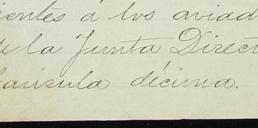 ientes á los aviad
de la Junta Direct
laúsula décima.